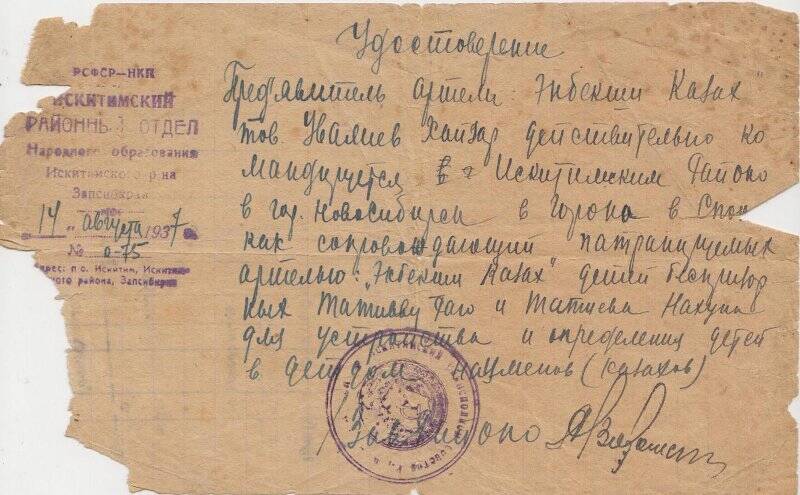 РСФСР—НКП
ИСКИТИМСКИЙ
РАЙОННЫЙ ОТДЕЛ
Народного образования
Искитимского р-на
Запсибкрая
"14" августа 1937 г.
№ 0-75
Адрес: п.о. Искитим, Искитим
ского района, Запсибкрая
Удостоверение
Пред'явитель артели "Энбекши Казах"
тов. Уалиев Хайдар действительно ко
мандируется Искитимским Районо
в гор. Новосибирск в Гороно в Спон
как сопровождающий патранируемых
артелью: "Энбекши Казах" детей беспризор
ных и Татиева
для устройства и определения детей
в детдом нацменов (казахов)